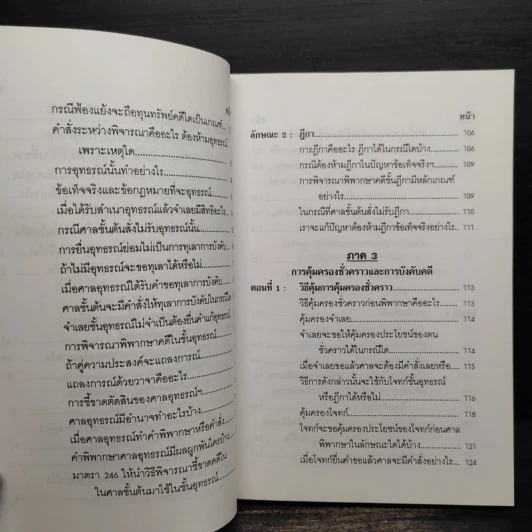 กรณีฟ้องแย้งจะถือทุนทรัพย์คดีใดเป็นเกณฑ์...
คำสั่งระหว่างพิจารณาคืออะไร ต้องห้ามอุทธรณ์
เพราะเหตุใด
การอุทธรณ์นั้นทำอย่างไร
ข้อเท็จจริงและข้อกฎหมายที่จะอุทธรณ์
เมื่อได้รับสำเนาอุทธรณ์แล้วจำเลยมีสิทธิอะไร
กรณีศาลชั้นต้นสั่งไม่รับอุทธรณ์นั้น
การยื่นอุทธรณ์ย่อมไม่เป็นการทุเลาการบังคับ
ถ้าไม่มีอุทธรณ์จะขอทุเลาได้หรือไม่
เมื่อศาลอุทธรณ์ได้รับคำขอทุเลาการบังคับ
ศาลชั้นต้นจะมีคำสั่งให้ทุเลาการบังคับในกรณีใด
จำเลยชั้นอุทธรณ์ไม่จำเป็นต้องยื่นคำแก้อุทธรณ์
การพิจารณาพิพากษาคดีในชั้นอุทธรณ์
ถ้าคู่ความประสงค์จะแถลงการณ์
แถลงการณ์ด้วยวาจาคืออะไร
การชี้ขาดตัดสินของศาลอุทธรณ์ฯ
ศาลอุทธรณ์มีอำนาจทำอะไรบ้าง
เมื่อศาลอุทธรณ์ทำคำพิพากษาหรือคำสั่ง
คำพิพากษาศาลอุทธรณ์มีผลผูกพันใครบ้าง
มาตรา 246 ให้นำวิธีพิจารณาชี้ขาดคดีใน
ในศาลชั้นต้นมาใช้ในชั้นอุทธรณ์
หน้า
ลักษณะ 2 : ฎีกา 106
การฎีกาคืออะไร ฎีกาได้ในกรณีใดบ้าง 106
กรณีต้องห้ามฎีกาในปัญหาข้อเท็จจริงฯ 109
การพิจารณาพิพากษาคดีชั้นฎีกามีหลักเกณฑ์
อย่างไร 109
ในกรณีที่ศาลชั้นต้นสั่งไม่รับฎีกา 110
เราจะแก้ปัญหาต้องห้ามฎีกาข้อเท็จจริงอย่างไร... 111
ภาค 3
การคุ้มครองชั่วคราวและการบังคับคดี
ตอนที่ 1 : วิธีคุ้มการคุ้มครองชั่วคราว 113
วิธีคุ้มครองชั่วคราวก่อนพิพากษาคืออะไร 113
คุ้มครองจำเลย 114
จำเลยจะขอให้คุ้มครองประโยชน์ของตน
ชั่วคราวได้ในกรณีใด 114
เมื่อจำเลยขอแล้วศาลจะต้องมีคำสั่งเลยหรือ 115
วิธีการดังกล่าวนั้นจะใช้กับโจทก์ชั้นอุทธรณ์
หรือฎีกาได้หรือไม่ 116
คุ้มครองโจทก์ 118
โจทก์จะขอคุ้มครองประโยชน์ของโจทก์ก่อนศาล
พิพากษาในลักษณะใดได้บ้าง 121
เมื่อโจทก์ยื่นคำขอแล้วศาลจะมีคำสั่งอย่างไร... 124